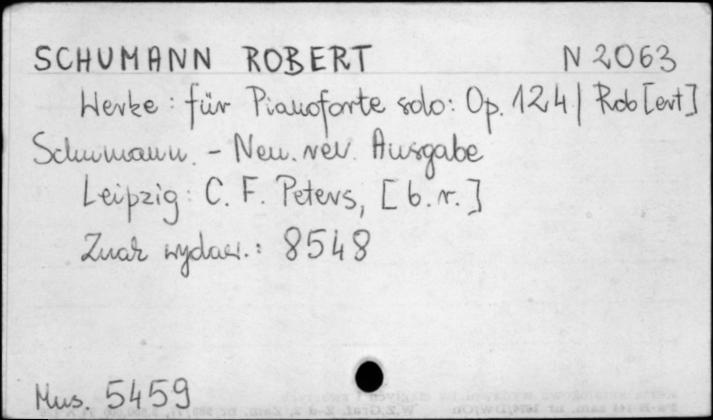 SCHUMANN ROBERT N 2063
Werke : für Pianoforte solo : Op. 124 / Rob[ert]
Schumann. - Neu. rev. Ausgabe
Leipzig : C. F. Peters, [b. r.]
Znak wydaw. : 8548
Mus. 5459